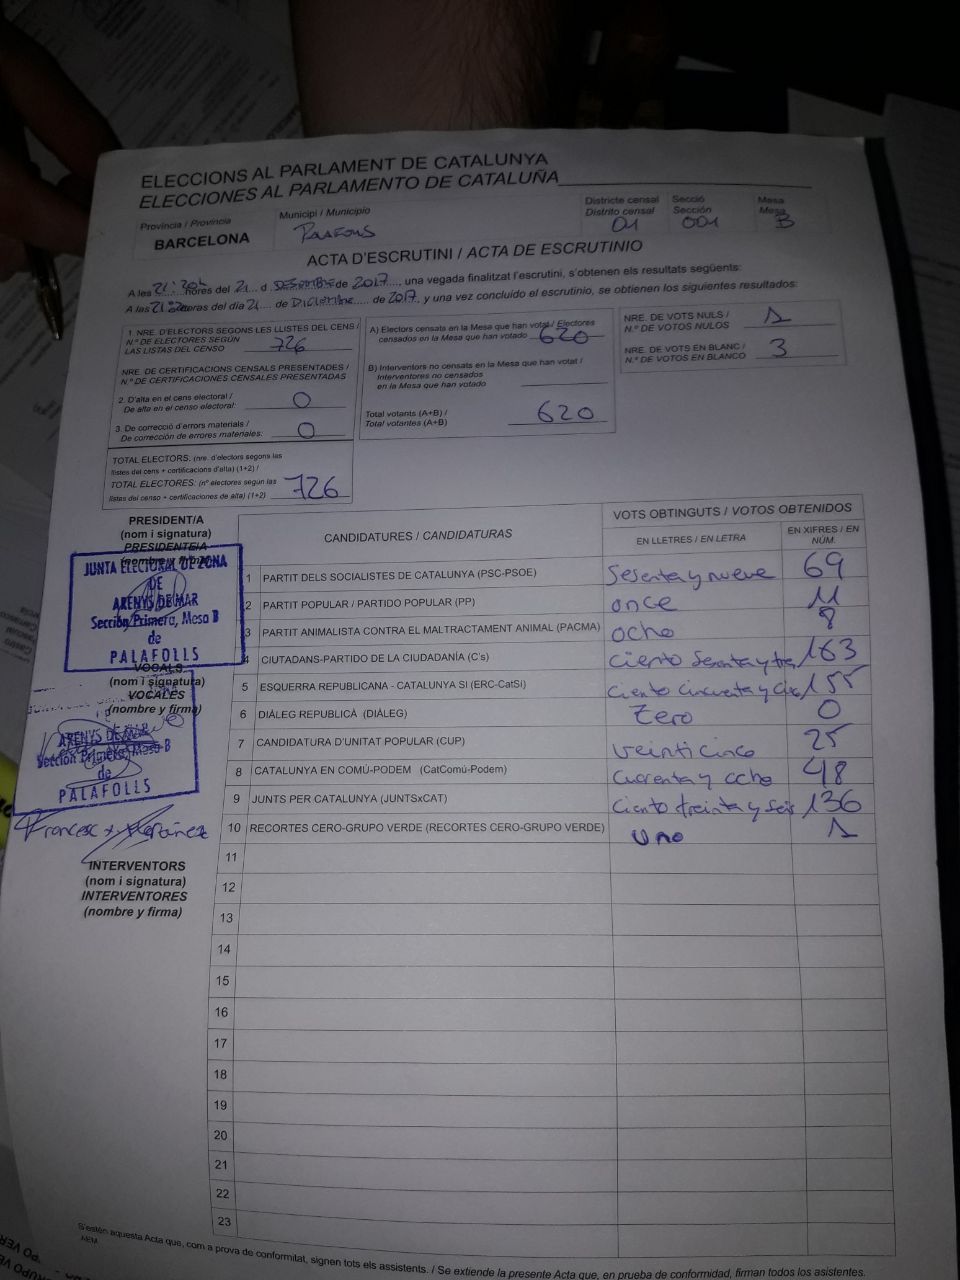 ELECCIONS AL PARLAMENT DE CATALUNYA
ELECCIONES AL PARLAMENTO DE CATALUÑA
Província / Provincia
BARCELONA
Municipi / Municipio
PALAFOLLS
Districte censal
Distrito censal
01
Secció
Sección
001
Mesa
Mesa
B
ACTA D'ESCRUTINI / ACTA DE ESCRUTINIO
A les 21:20h hores del 21 d DESEMBRE de 2017, una vegada finalitzat l'escrutini, s'obtenen els resultats següents:
A las horas del día 21 de DICIEMBRE de 2017, y una vez concluido el escrutinio, se obtienen los siguientes resultados:
1. NRE. D'ELECTORS SEGONS LES LLISTES DEL CENS /
N.º DE ELECTORES SEGÚN
LAS LISTAS DEL CENSO 726
NRE. DE CERTIFICACIONS CENSALS PRESENTADES /
N.º DE CERTIFICACIONES CENSALES PRESENTADAS
2. D'alta en el cens electoral /
De alta en el censo electoral: 0
3. De correcció d'errors materials /
De corrección de errores materiales: 0
TOTAL ELECTORS. (nre. d'electors segons las
llistes del cens + certificacions d'alta) (1+2) /
TOTAL ELECTORES: (nº electores según las
listas del censo + certificaciones de alta) (1+2) 726
A) Electors censats en la Mesa que han votat / Electores
censados en la Mesa que han votado 620
B) Interventors no censats en la Mesa que han votat /
Interventores no censados
en la Mesa que han votado
Total votants (A+B) /
Total votantes (A+B) 620
NRE. DE VOTS NULS /
N.º DE VOTOS NULOS 1
NRE. DE VOTS EN BLANC /
N.º DE VOTOS EN BLANCO 3
PRESIDENT/A
(nom i signatura)
PRESIDENTE/A
(nombre y firma)
JUNTA ELECTORAL DE ZONA
DE
ARENYS DE MAR
Sección Primera, Mesa B
de
PALAFOLLS
VOCALS
(nom i signatura)
VOCALES
(nombre y firma)
ARENYS DE MAR
Sección Primera, Mesa B
de
PALAFOLLS
Francesc
INTERVENTORS
(nom i signatura)
INTERVENTORES
(nombre y firma)
CANDIDATURES / CANDIDATURAS
VOTS OBTINGUTS / VOTOS OBTENIDOS
EN LLETRES / EN LETRA
EN XIFRES / EN NÚM.
1 PARTIT DELS SOCIALISTES DE CATALUNYA (PSC-PSOE) Sesenta y nueve 69
2 PARTIT POPULAR / PARTIDO POPULAR (PP) once 11
3 PARTIT ANIMALISTA CONTRA EL MALTRACTAMENT ANIMAL (PACMA) ocho 8
4 CIUTADANS-PARTIDO DE LA CIUDADANÍA (C's) ciento sesenta y tres 163
5 ESQUERRA REPUBLICANA - CATALUNYA SI (ERC-CatSí) ciento cincuenta y 155
6 DIÀLEG REPUBLICÀ (DIÀLEG) Zero 0
7 CANDIDATURA D'UNITAT POPULAR (CUP) veinticinco 25
8 CATALUNYA EN COMÚ-PODEM (CatComú-Podem) cuarenta y ocho 48
9 JUNTS PER CATALUNYA (JUNTSxCAT) ciento treinta y seis 136
10 RECORTES CERO-GRUPO VERDE (RECORTES CERO-GRUPO VERDE) uno 1
11
12
13
14
15
16
17
18
19
20
21
22
23
S'estén aquesta Acta que, com a prova de conformitat, signen tots els assistents. / Se extiende la presente Acta que, en prueba de conformidad, firman todos los asistentes.